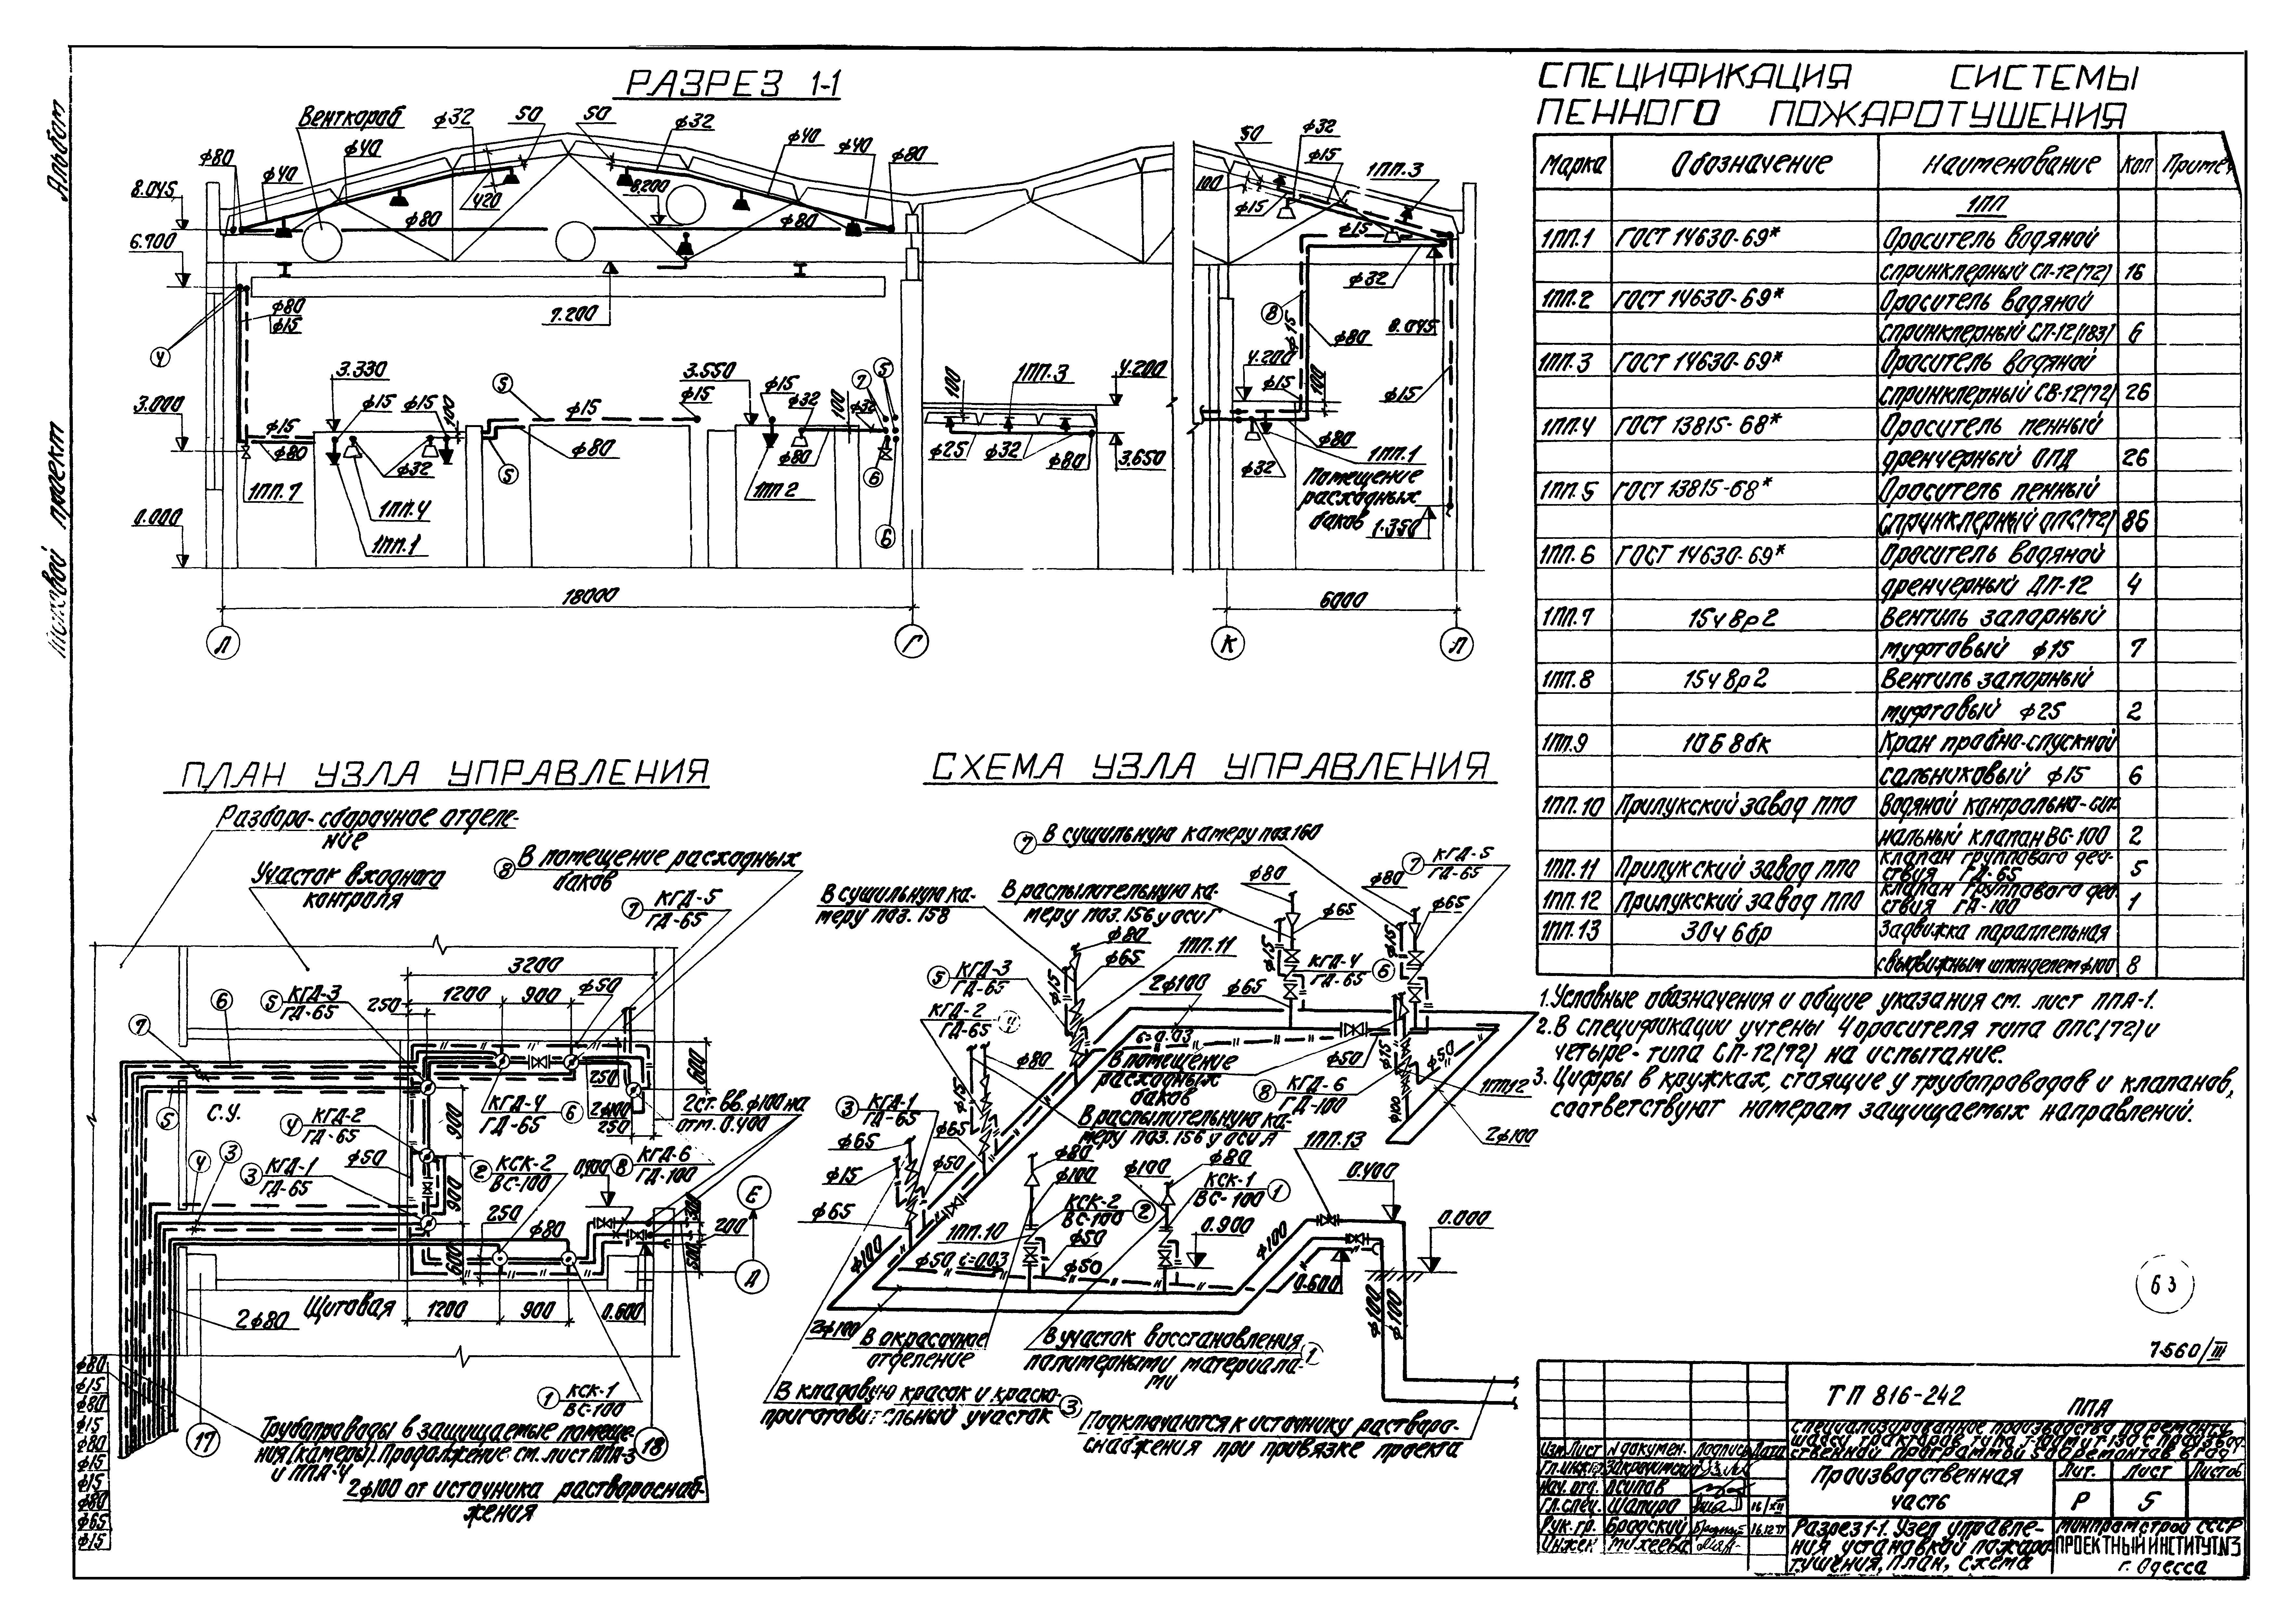 Альбом
Типовой проект
РАЗРЕЗ 1-1
Венткороб
ф32
50
50
ф32
ф40
ф40
ф80
ф80
ф40
ф40
8.045
420
8.200
ф80
ф80
6.700
ф80
ф15
7.200
4
3.330
5
ф15
3.550
ф15
ф15
ф32
100
7
5
ф32
3.000
ф15
ф80
ф15
ф15
100
ф32
5
ф80
ф80
6
1ПП.7
1ПП.4
1ПП.1
1ПП 2
6
0.000
100
1ПП.3
4.200
ф25
ф32
ф80
3.650
50
ф32
ф15
1ПП.3
100
ф15
ф15
ф32
8
ф15
ф80
8.045
4.200
ф15
100
ф15
ф80
ф32
1ПП.1
Помещение
расходных
баков
1.350
18000
6000
Л
Г
К
Л
СПЕЦИФИКАЦИЯ СИСТЕМЫ
ПЕННОГО ПОЖАРОТУШЕНИЯ
Марка Обозначение Наименование Кол Примеч
1ПП
1ПП.1 ГОСТ 14630-69* Ороситель водяной
спринклерный СП-12(72) 16
1ПП.2 ГОСТ 14630-69* Ороситель водяной
спринклерный СП-12(183) 6
1ПП.3 ГОСТ 14630-69* Ороситель водяной
спринклерный СВ-12(72) 26
1ПП.4 ГОСТ 13815-68* Ороситель пенный
дренчерный ОПД 26
1ПП.5 ГОСТ 13815-68* Ороситель пенный
спринклерный ОПС(72) 86
1ПП.6 ГОСТ 14630-69* Ороситель водяной
дренчерный ДП-12 4
1ПП.7 15ч8р2 Вентиль запорный
муфтовый ф15 7
1ПП.8 15ч8р2 Вентиль запорный
муфтовый ф25 2
1ПП.9 10Б8бк Кран пробно-спускной
сальниковый ф15 6
1ПП.10 Прилукский завод ППО Водяной контрольно-сиг-
нальный клапан ВС-100 2
1ПП.11 Прилукский завод ППО клапан группового дей-
ствия ГД-65 5
1ПП.12 Прилукский завод ППО клапан группового дей-
ствия ГД-100 1
1ПП.13 30ч6бр Задвижка параллельная
с выдвижным шпинделем ф100 8
1. Условные обозначения и общие указания см. лист ППА-1.
2. В спецификации учтены 4 оросителя типа ОПС(72) и
четыре - типа СП-12(72) на испытание.
3. Цифры в кружках, стоящие у трубопроводов и клапанов,
соответствуют номерам защищаемых направлений.
ПЛАН УЗЛА УПРАВЛЕНИЯ
Разборо-сборочное отделе-
ние
Участок входного
контроля
8 В помещение расходных
баков
7 КГД-5
ГД-65
3200
1200
900
ф50
250
5 КГД-3
ГД-65
6
7
5
С.У.
4 КГД-2
ГД-65
900
КГД-4
ГД-65
6
250
2ф100
250
600
2 ст. вв. ф100 на
отм. 0.400
4
3
3 КГД-1
ГД-65
ф50
900
2 КСК-2
ВС-100
0.400
8 КГД-6
ГД-100
Е
250
ф80
200
600
А
Щитовая
1200
900
0.600
2ф80
1 КСК-1
ВС-100
ф80
ф15
ф80
ф15
ф80
ф15
ф15
ф80
ф65
ф15
17
18
Трубопроводы в защищаемые помеще-
ния (камеры). Продолжение см. лист ППА-3
и ППА-4
2ф100 от источника раствороснаб-
жения
СХЕМА УЗЛА УПРАВЛЕНИЯ
7 В сушильную камеру поз.160
В сушильную ка-
меру поз. 158
В распылительную ка-
меру поз. 156 у оси Г
ф80
ф80
7 КГД-5
ГД-65
ф80
ф65
1ПП.11
ф65
ф65
5 КГД-3
ГД-65
ф15
ф15
ф15
КГД-4
ГД-65
6
2ф100
ф65
КГД-2
ГД-65
4
ф80
i=0.03
ф50
ф15
ф50
В помещение
расходных
баков
8 КГД-6
ГД-100
1ПП12
3 КГД-1
ГД-65
ф15
ф65
В распылительную ка-
меру поз. 156 у оси Л
1ПП.13
ф100
2ф100
ф65
ф15
ф50
ф80
ф100
ф100
ф80
КСК-1
ВС-100
1
КСК-2
ВС-100
2
0.400
ф65
1ПП.10
0.900
0.000
ф100
ф50 i=0.03
ф50
ф50
ф100
0.600
ф100
ф100
2ф100
В окрасочное
отделение
В участок восстановления
полимерными материала-
ми
1
В кладовую красок и краско-
приготовительный участок
3
Подключаются к источнику раствора-
снабжения при привязке проекта
63
7560/III
ТП 816-242
ППА
Изм Лист N докумен. Подпись Дата
Гл.инж.пр
Нач. отд. Осипов
Гл. спец. Шапиро 16/XII
Рук. гр. Бродский 16.12.77
Инжен Михеева
Производственная
часть
Лит. Лист Листов
Р 5
Разрез 1-1. Узел управле-
ния установкой пожаро-
тушения, план, схема
Минпромстрой СССР
ПРОЕКТНЫЙ ИНСТИТУТ №3
г. Одесса